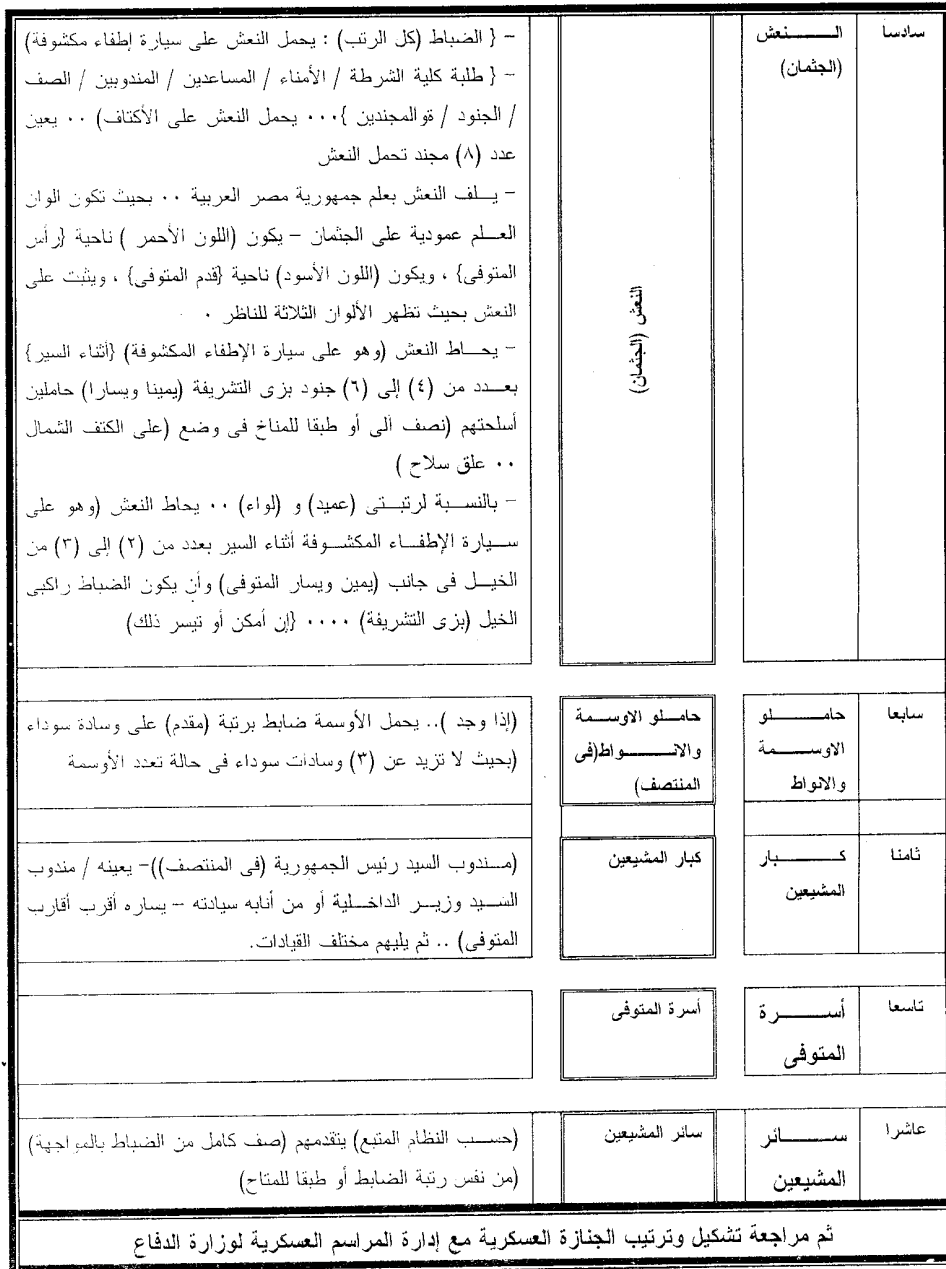 سادسا
الـــــنعش
(الجثمان)
النعش (الجثمان)
- { الضباط (كل الرتب) : يحمل النعش على سيارة إطفاء مكشوفة)
- { طلبة كلية الشرطة / الأمناء / المساعدين / المندوبين / الصف
/ الجنود / والمجندين }٠٠٠ يحمل النعش على الأكتاف) ٠٠ يعين
عدد (٨) مجند تحمل النعش
- يــلف النعش بعلم جمهورية مصر العربية ٠٠ بحيث تكون الوان
العــلم عمودية على الجثمان – يكون (اللون الأحمر ) ناحية {رأس
المتوفى} ، ويكون (اللون الأسود) ناحية {قدم المتوفى} ، ويثبت على
النعش بحيث تظهر الألوان الثلاثة للناظر ٠
- يحــاط النعش (وهو على سيارة الإطفاء المكشوفة) {أثناء السير}
بعـــدد من (٤) إلى (٦) جنود بزى التشريفة (يمينا ويسارا) حاملين
أسلحتهم (نصف ألى أو طبقا للمناخ فى وضع (على الكتف الشمال
٠٠ علق سلاح )
- بالنســبة لرتبــتى (عميد) و (لواء) ٠٠ يحاط النعش (وهو على
ســيارة الإطفــاء المكشــوفة أثناء السير بعدد من (٢) إلى (٣) من
الخيــل فى جانب (يمين ويسار المتوفى) وأن يكون الضباط راكبى
الخيل (بزى التشريفة) ٠٠٠٠ {إن أمكن أو تيسر ذلك)
سابعا
حامـــــلو
الاوســـــمة
والانواط
حامــلو الاوســـمة
والانـــــواط(فى
المنتصف)
(إذا وجد ).. يحمل الأوسمة ضابط برتبة (مقدم) على وسادة سوداء
(بحيث لا تزيد عن (٣) وسادات سوداء فى حالة تعدد الأوسمة
ثامنا
كـــــبار
المشيعين
كبار المشيعين
(مــندوب السيد رئيس الجمهورية (فى المنتصف))– يعينه / مندوب
الســيد وزيــر الداخــلية أو من أنابه سيادته – يساره أقرب أقارب
المتوفى) .. ثم يليهم مختلف القيادات.
تاسعا
أســـــرة
المتوفى
أسرة المتوفى
عاشرا
ســـــائر
المشيعين
سائر المشيعين
(حســب النظام المتبع) يتقدمهم (صف كامل من الضباط بالمواجهة)
(من نفس رتبة الضابط أو طبقا للمتاح)
ثم مراجعة تشكيل وترتيب الجنازة العسكرية مع إدارة المراسم العسكرية لوزارة الدفاع